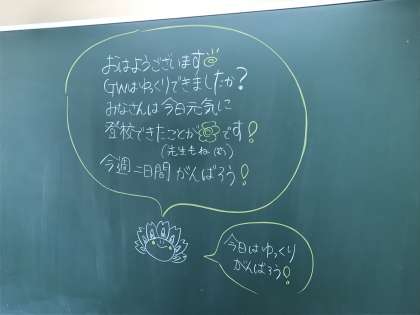 おはようございます
GWはゆっくりできましたか？
みなさんは今日元気に
登校できたことが です！
（先生もね
今週二日間がんばろう！
今日はゆっくり
がんばろう！